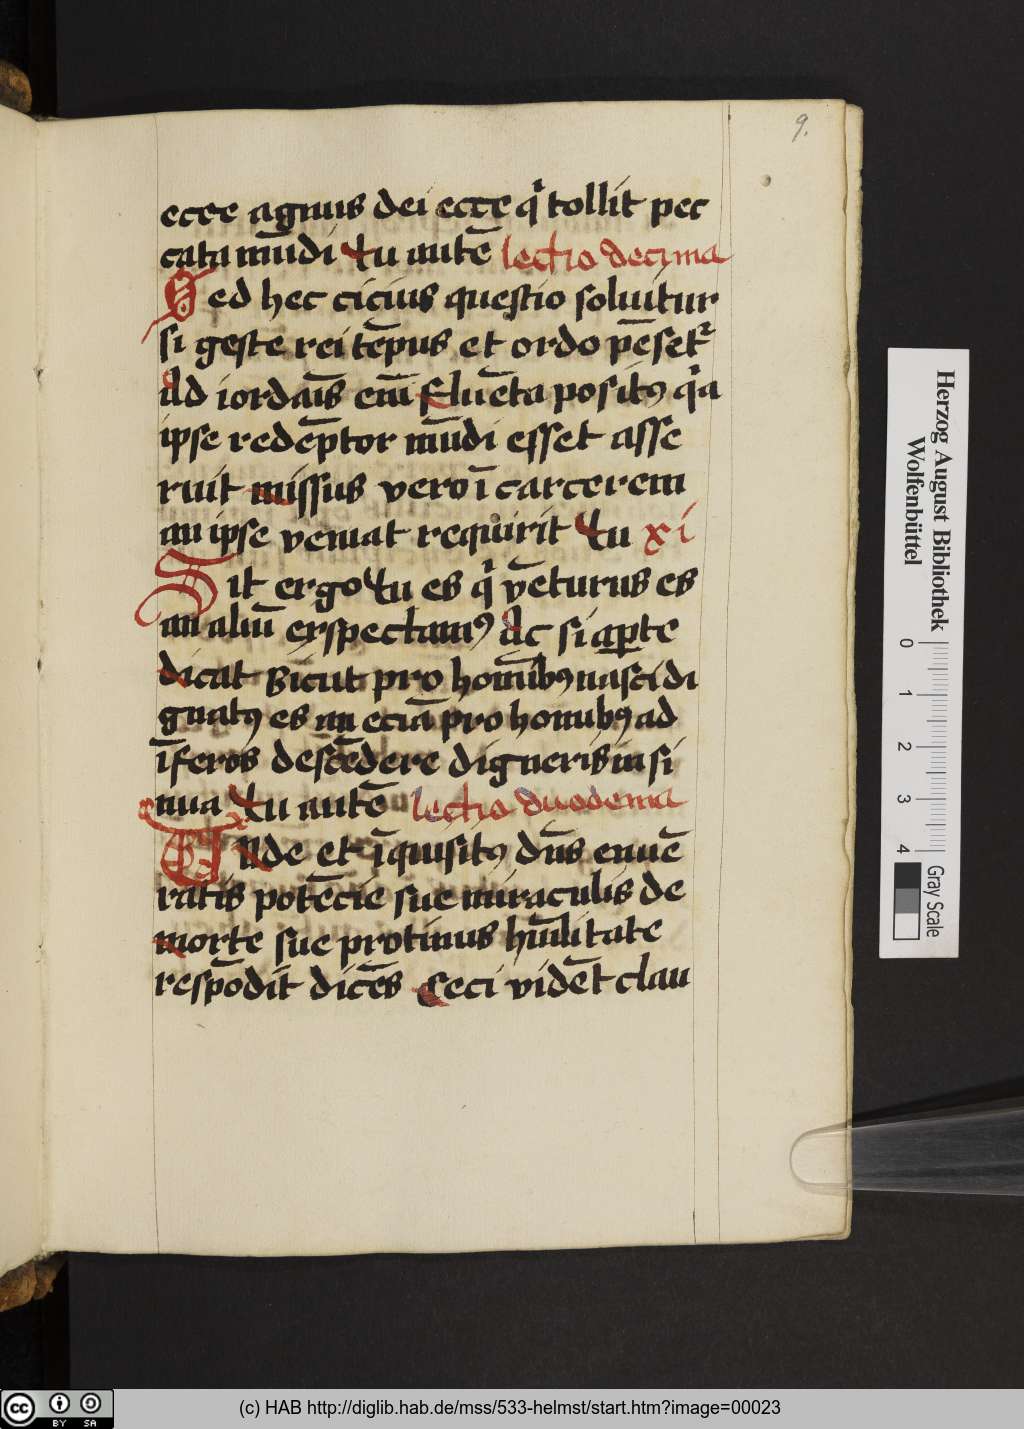 9.
ecce agnus dei ecce qͥ tollit pec
cata mūdi tu autē lectio decima
Sed hec cicius questio soluitur
si geste rei tēpus et ordo pēsetᷣ
Ad iordaīs em̄ fluēta positꝰ qͥa
ipse redēptor mūdi esset asse
ruit missus vero ī carcerem
an ipse veniat requirit tu xi
Sit ergo tu es qͥ vēturus es
an aliū exspectamꝰ Ac si aꝑte
dicat Sicut pro homībꝰ nasci di
gnatꝰ es an eciā pro honubꝰ ad
īferos descēdere digneris insi
nua tu autē lectio duodema
Unde et īquisitꝰ dn̄s enuē
ratis potēcie sue miraculis de
morte sue protinus hūilitate
respōdit dicēs Ceci vidēt clau
Herzog August Bibliothek
Wolfenbüttel
0 1 2 3 4
Gray Scale
cc BY SA
(c) HAB http://diglib.hab.de/mss/533-helmst/start.htm?image=00023